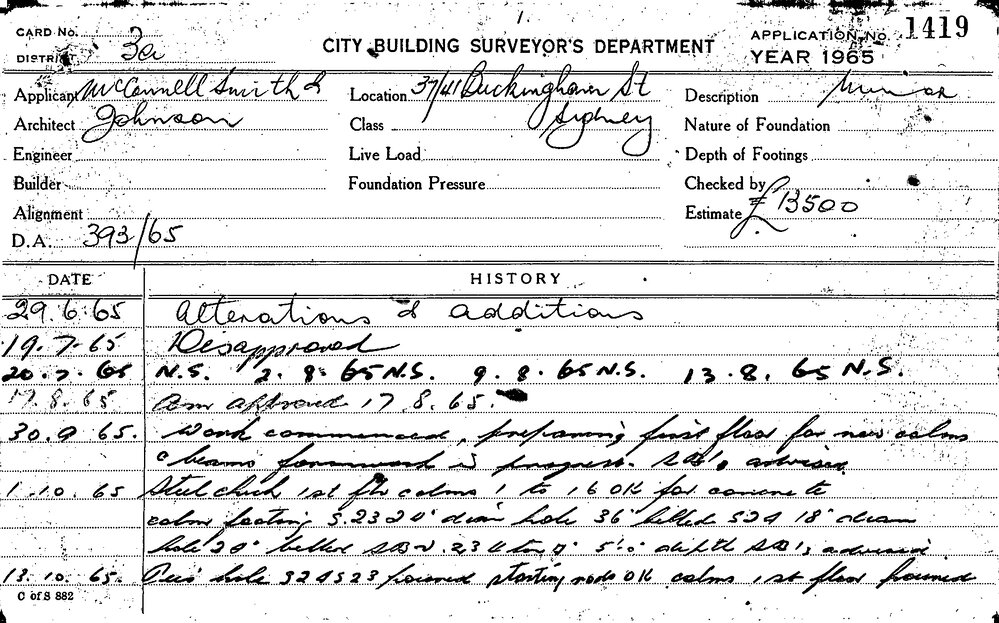 CARD No.
DISTRICT 3a
CITY BUILDING SURVEYOR'S DEPARTMENT
APPLICATION No. 1419
YEAR 1965
Applicant McConnell Smith &
Location 37/41 Buckingham St
Description
Architect Johnson
Class
Sydney
Nature of Foundation
Engineer
Live Load
Depth of Footings
Builder
Foundation Pressure
Checked by
Alignment
Estimate £13500
D.A. 393/65
DATE
HISTORY
29.6.65 Alterations & additions
19.7.65 Disapproved
20.7.65 N.S. 2.8.65 N.S. 9.8.65 N.S. 13.8.65 N.S.
17.8.65 approved 17.8.65.
30.9.65. Work commenced, preparing first floor for new colms
& beams formwork in progress. advised
1.10.65 Steel check 1st flr colms 1 to 16 OK for concrete
colm footing S.23 20" diam hole 36" belled S29 18" diam
hole 20" belled 5'0" depth advised
13.10.65. hole S29 S23 poured starting rods OK colms 1st floor poured
C of S 882